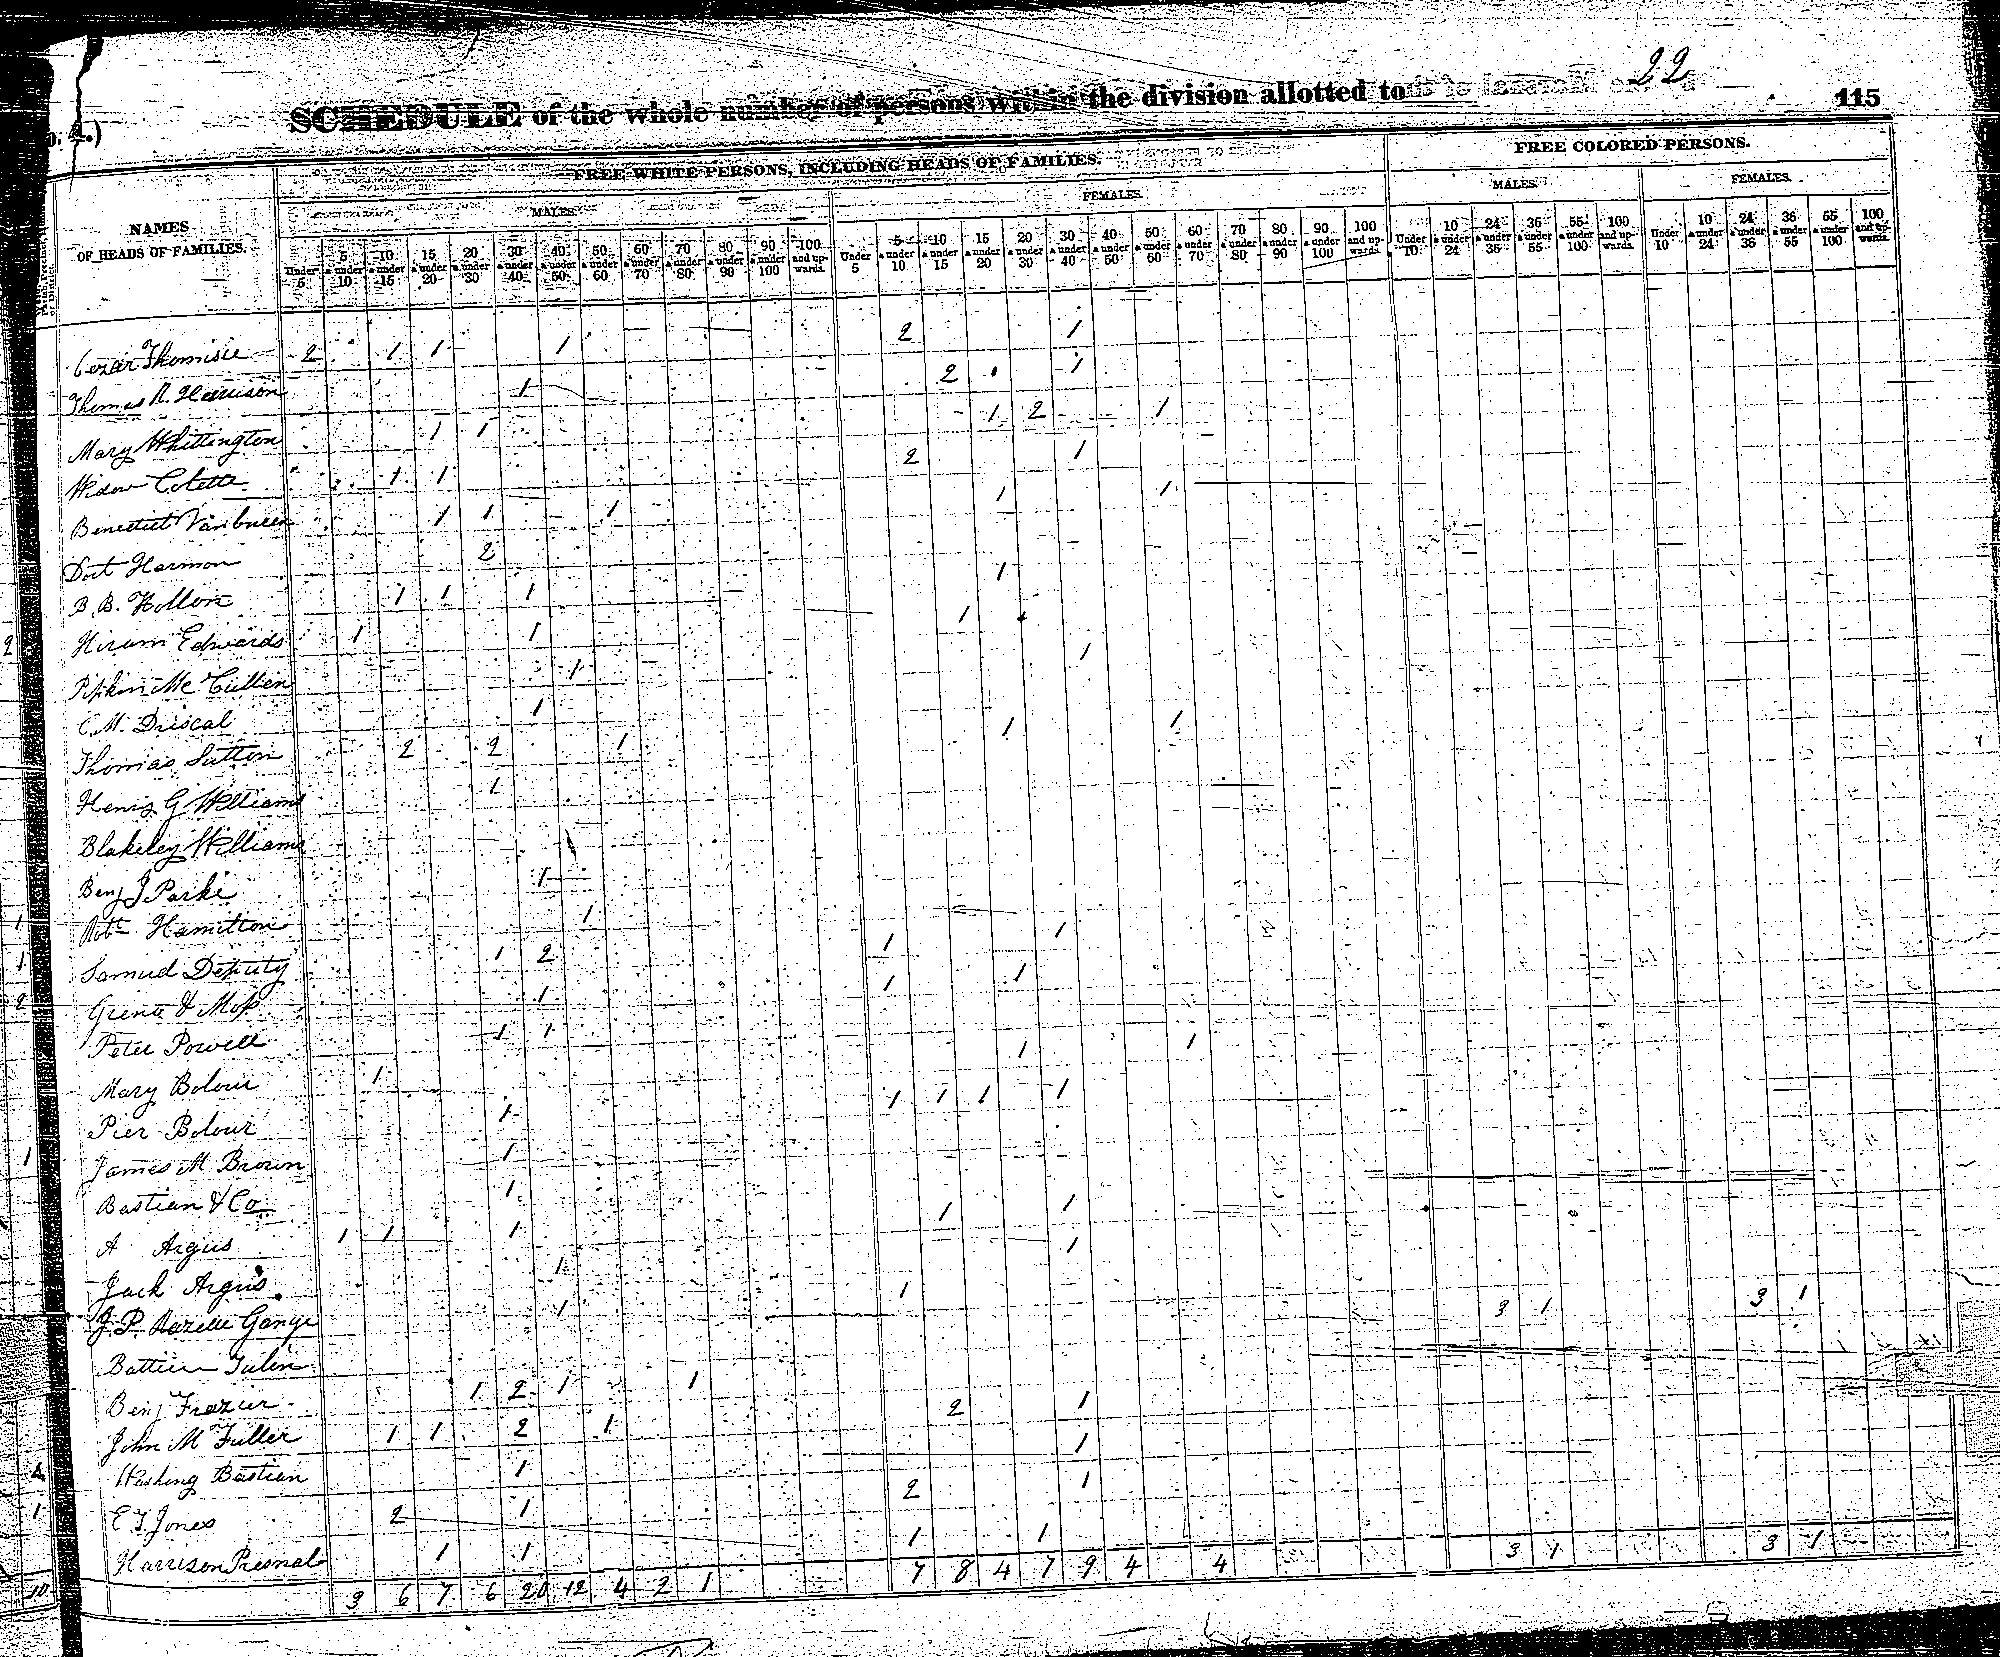 22
SCHEDULE of the whole number of persons within the division allotted to
115
FREE WHITE PERSONS, INCLUDING HEADS OF FAMILIES.
FREE COLORED PERSONS.
MALES.
FEMALES.
MALES.
FEMALES.
NAMES
OF HEADS OF FAMILIES.
Under 5
5 & under 10
10 & under 15
15 & under 20
20 & under 30
30 & under 40
40 & under 50
50 & under 60
60 & under 70
70 & under 80
80 & under 90
90 & under 100
100 and upwards.
Under 5
5 & under 10
10 & under 15
15 & under 20
20 & under 30
30 & under 40
40 & under 50
50 & under 60
60 & under 70
70 & under 80
80 & under 90
90 & under 100
100 and upwards.
Under 10
10 & under 24
24 & under 36
36 & under 55
55 & under 100
100 and upwards.
Under 10
10 & under 24
24 & under 36
36 & under 55
55 & under 100
100 and upwards.
Cezar Thomisie 2 1 1 1 2 1
Thomas R. Harrison 1 2 1
Mary Whittington 1 1 1 2 1
Widow Colette 1 1 2 1
Benedict Vanburen 1 1 1 1 1
Doct Harmon 2
B. B. Hollon 1 1 1 1
2 Hiram Edwards 1 1 1
Pipkin McCullen 1 1
C. M. Driscal 1
Thomas Sutton 2 2 1 1 1
Henry G Williams 1
Blakeley Williams
Benj J Parke 1
1 Robt Hamilton 1
1 Samuel Deputy 1 2 1 1
2 1 1 1
Peter Powell 1 1
Mary Bolour 1 1 1
Pier Bolour 1 1 1 1 1
1 James M Brown 1
Bastian & Co 1
A Argus 1 1 1 1 1
Jack Argus 1 1
J. P. Gange 1 1
Tulin 3 1 3 1
Benj Frazier 1 2 1 1
John M Fuller 1 1 2 1 2 1
4 Bastian 1 1
1 E T Jones 2 1 2 1
Harrison Presnal 1 1 1 1
10 3 6 7 6 20 12 4 2 1 7 8 4 7 9 4 4 3 1 3 1